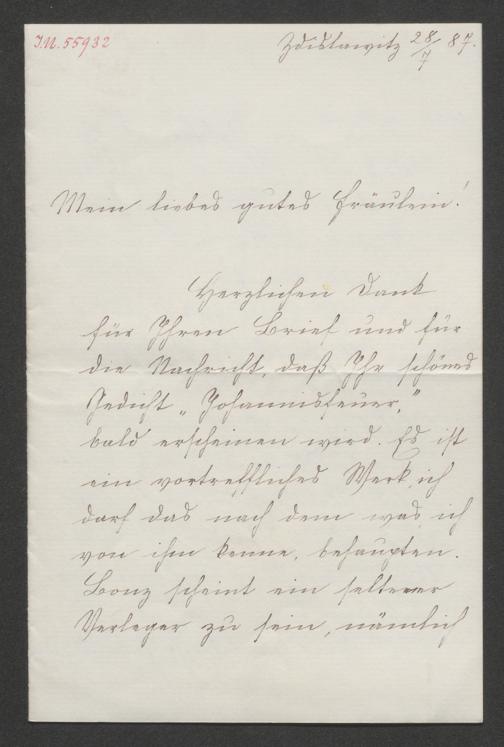 I.N. 55932
Zdislawitz 28/7 87.
Mein liebes gutes Fräulein!
Herzlichen Dank
für Ihren Brief und für
die Nachricht, daß Ihr schönes
Gedicht „Johannisfeuer,“
bald erscheinen wird. Es ist
ein vortreffliches Werk, ich
darf das nach dem was ich
von ihm kenne, behaupten.
Bonz scheint ein seltener
Verleger zu sein, nämlich